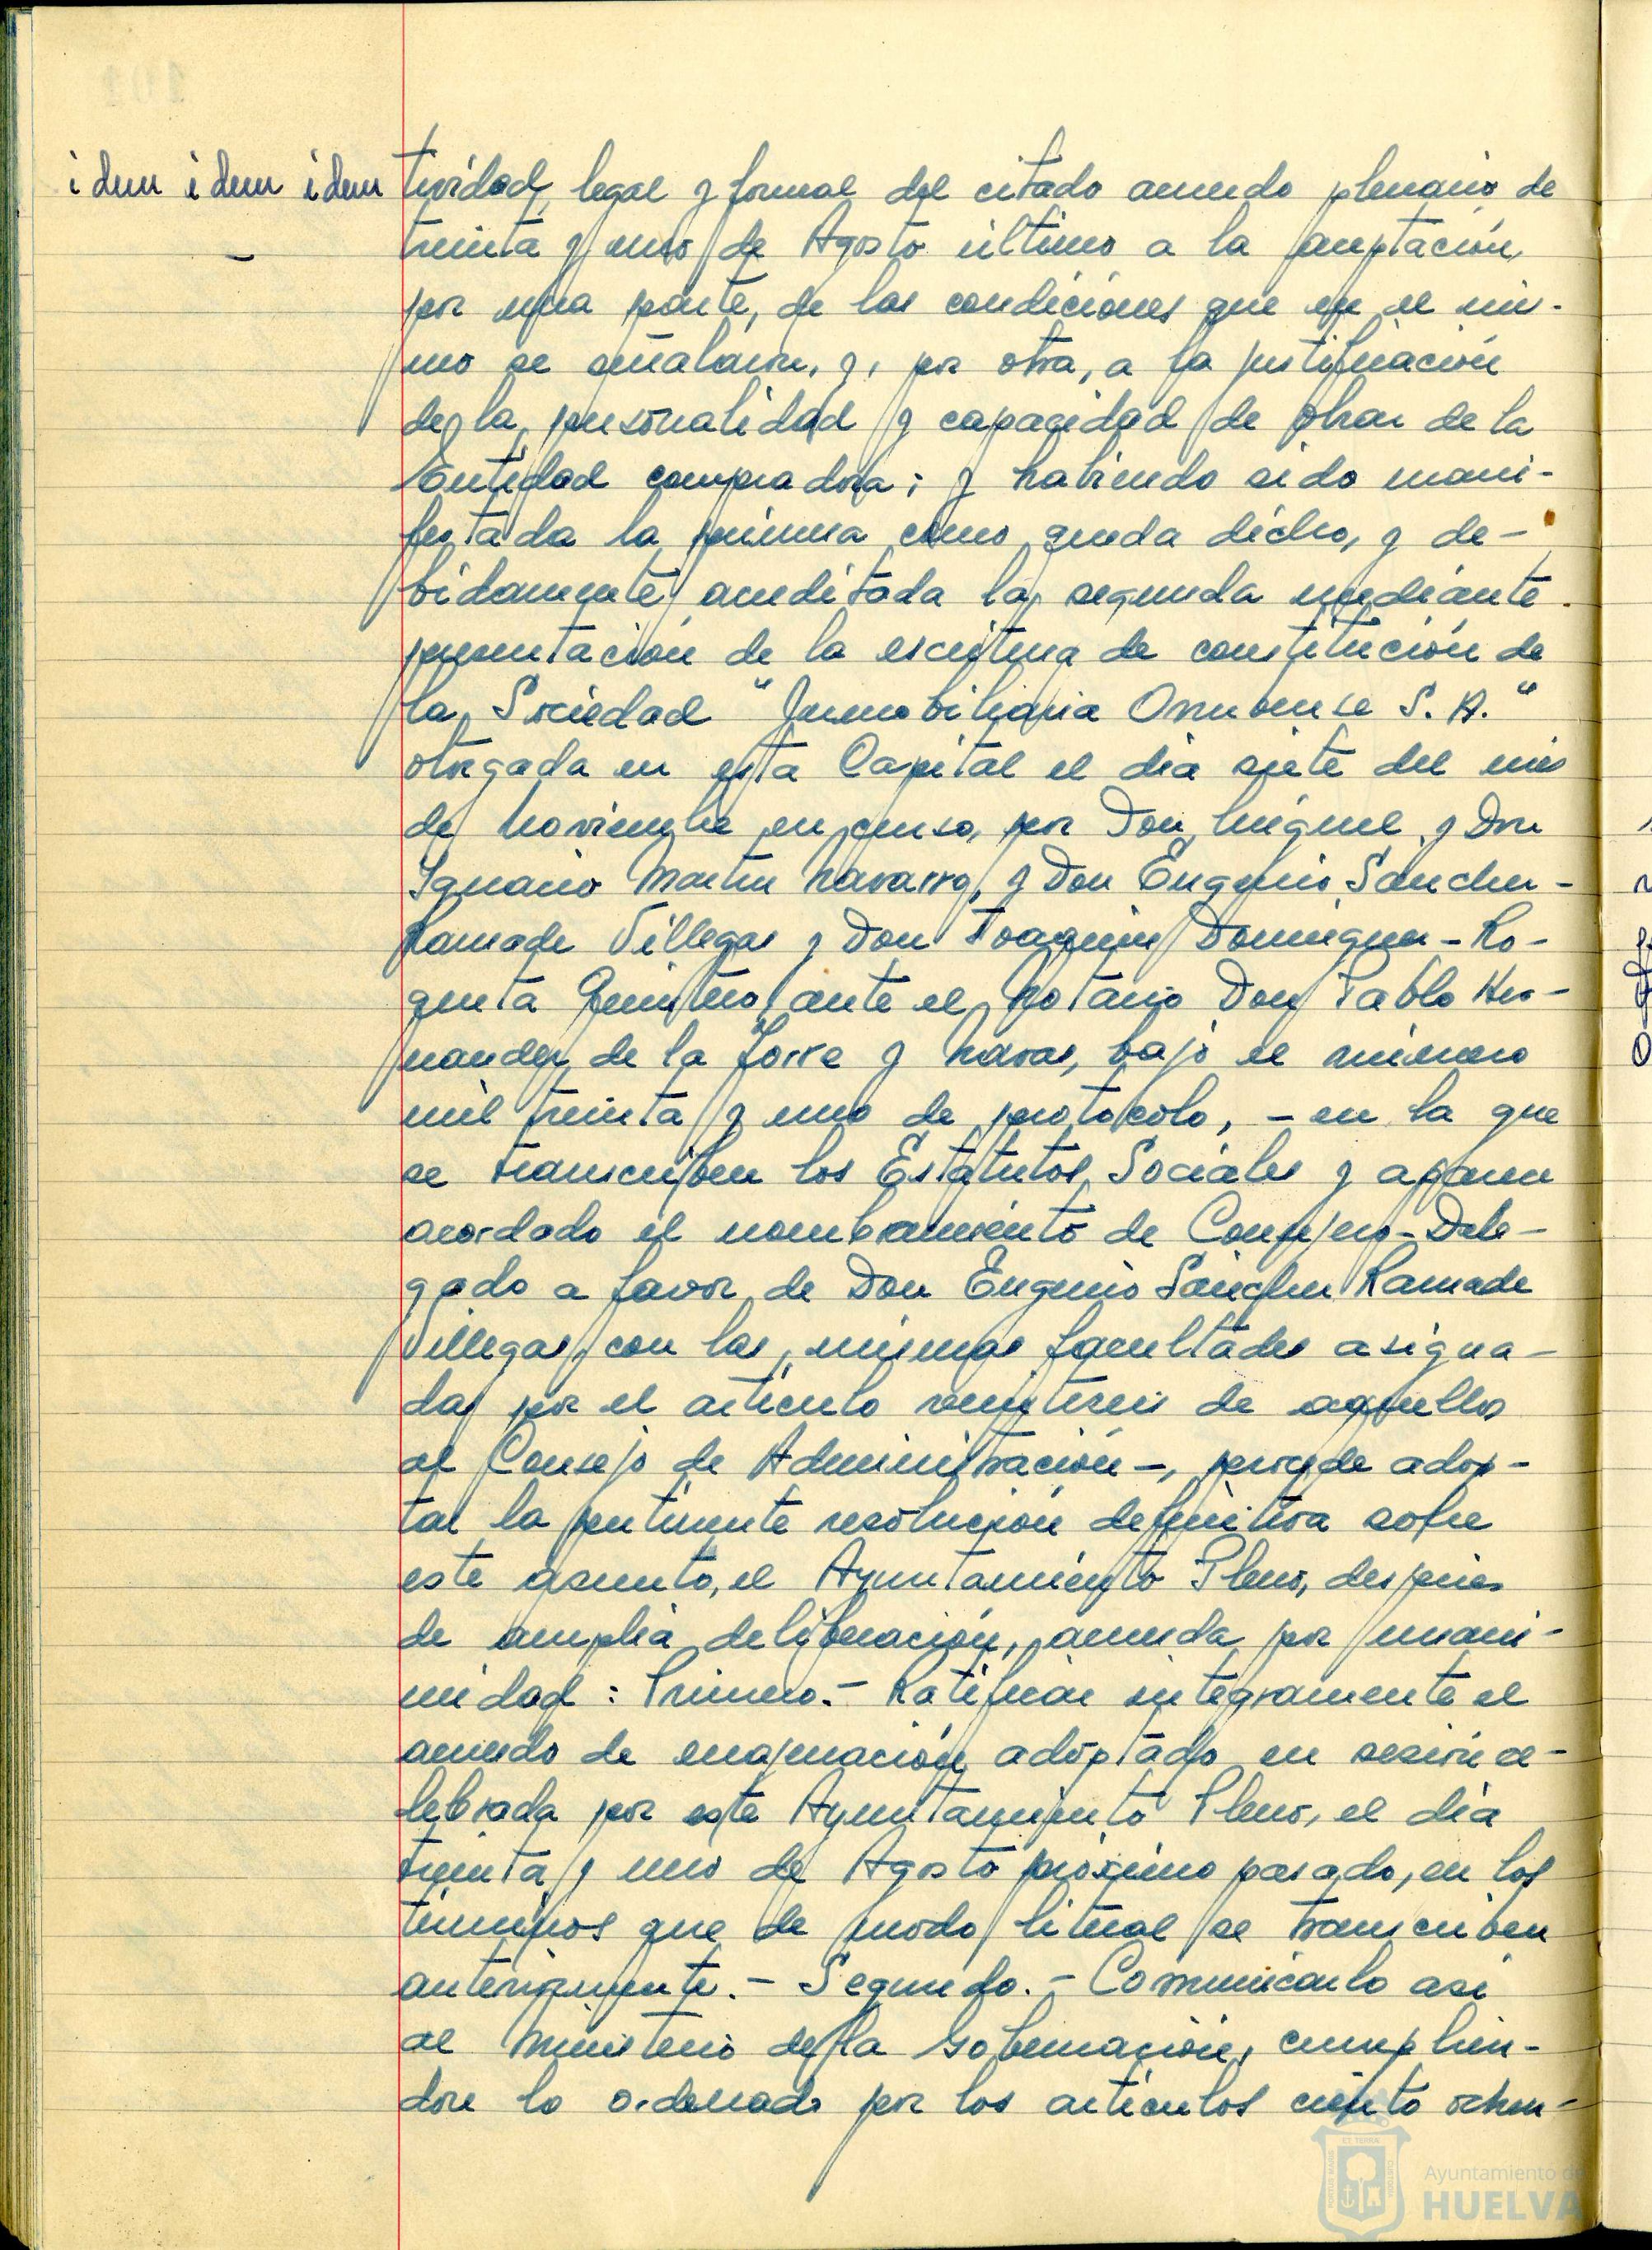 idem idem idem
tividad, legal y formal del citado acuerdo plenario de
treinta y uno de Agosto último a la aceptación,
por una parte, de las condiciones que en el mis-
mo se señalaron, y, por otra, a la justificación
de la personalidad y capacidad de obrar de la
Entidad compradora; y habiendo sido mani-
festada la primera como queda dicho, y de-
bidamente acreditada la segunda mediante
presentación de la escritura de constitución de
la Sociedad "Inmobiliaria Onubense S.A."
otorgada en esta Capital el día siete del mes
de Noviembre en curso, por Don Miguel y Don
Ignacio Martin Navarro, y Don Eugenio Sanchez-
Ramade Villegas y Don Joaquin Dominguez-Ro-
queta Quintero, ante el Notario Don Pablo Her-
nandez de la Torre y Navas, bajo el número
mil treinta y uno de protocolo, - en la que
se transcriben los Estatutos Sociales y aparece
acordado el nombramiento de Consejero-Dele-
gado a favor de Don Eugenio Sánchez Ramade
Villegas, con las mismas facultades asigna-
das por el artículo veintiseis de aquellos
al Consejo de Administración -, procede adop-
tar la pertinente resolución definitiva sobre
este asunto, el Ayuntamiento Pleno, despues
de amplia deliberación, acuerda por unani-
midad: Primero.- Ratificar integramente el
acuerdo de enajenación adoptado en sesión ce-
lebrada por este Ayuntamiento Pleno, el día
treinta y uno de Agosto próximo pasado, en los
términos que de modo literal se transcriben
anteriormente.- Segundo.- Comunicarlo así
al Ministerio de la Gobernación, cumplien-
dose lo ordenado por los artículos ciento ochen-
Ayuntamiento de
HUELVA